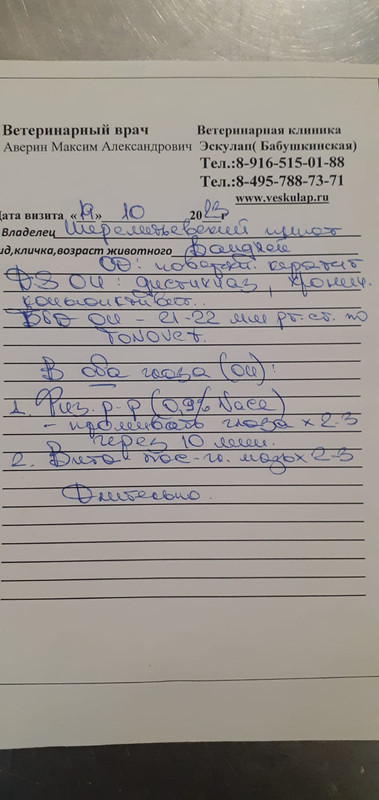 Ветеринарный врач Ветеринарная клиника
Аверин Максим Александрович Эскулап( Бабушкинская)
Тел.:8-916-515-01-88
Тел.:8-495-788-73-71
www.veskulap.ru
Дата визита «19» 10 20 г
Владелец Шереметьевский приют
ид,кличка,возраст животного
OD: кератит
DS OU: дистихиаз, хронич.
конъюнктивит..
ВГД OU - 21-22 мм рт. ст. по
TONOVET.
В оба глаза (OU):
1. Физ. р-р (0,9% NaCl)
- промывать глаза х 2-3
через 10 мин.
2. Вита - пос - гл. мазь х 2-3
Длительно.